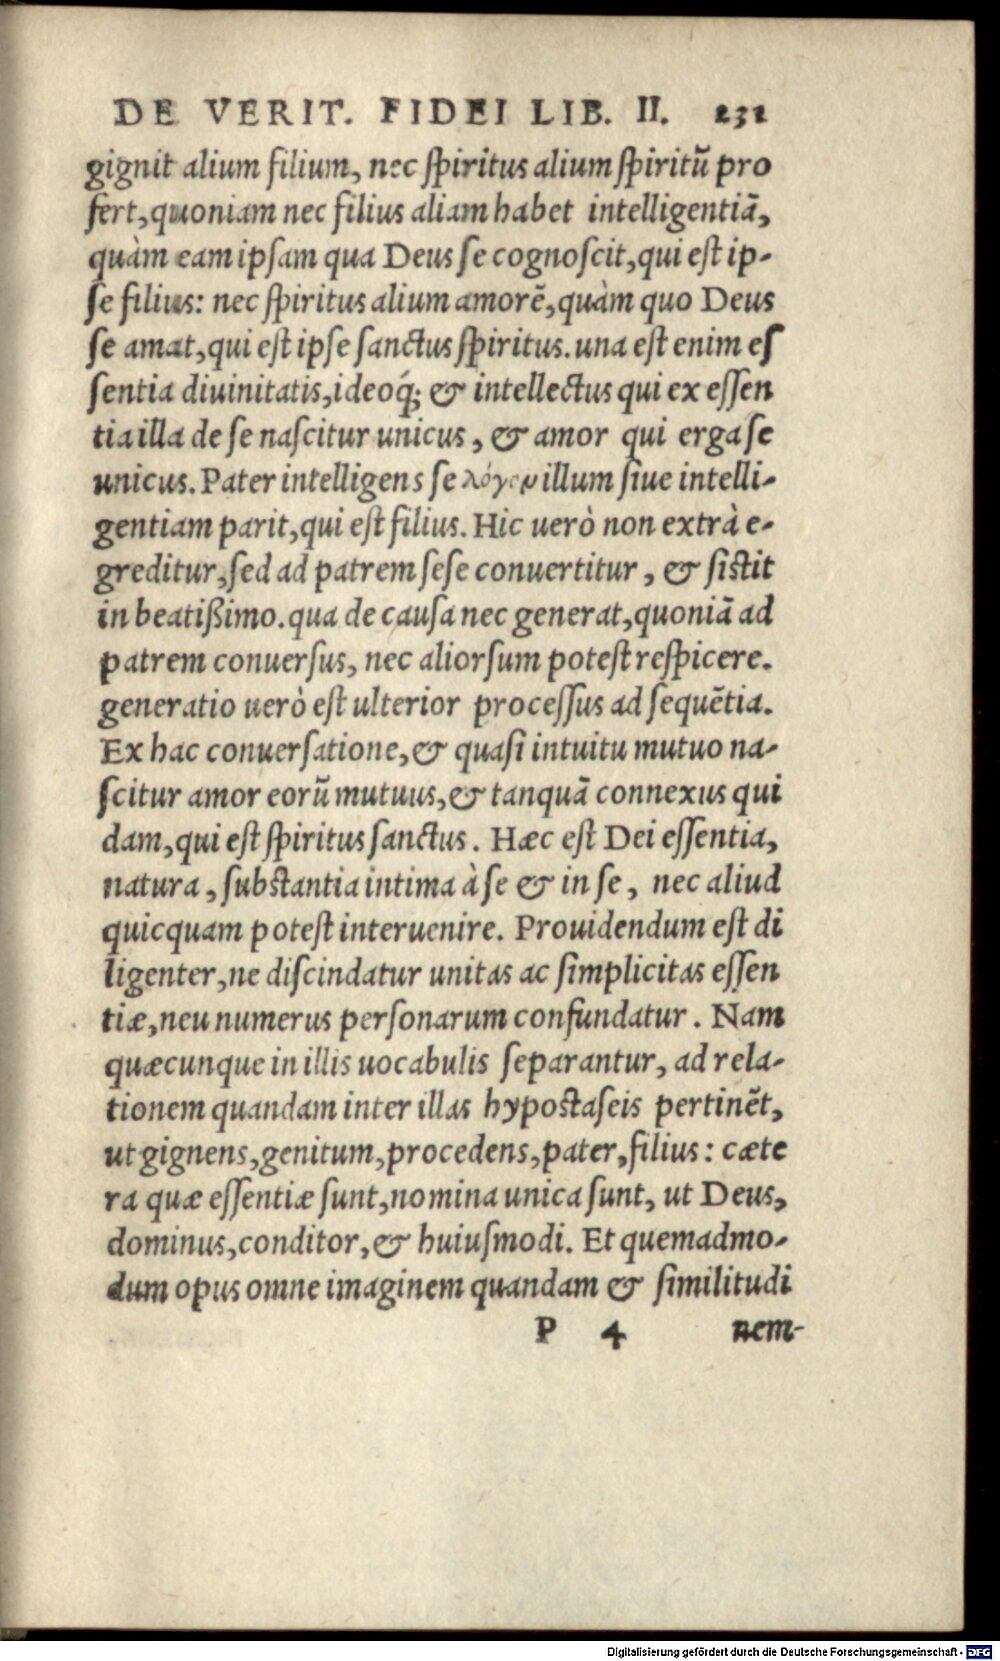 DE VERIT. FIDEI LIB. II. 231
gignit alium filium, nec spiritus alium spiritū pro
fert, quoniam nec filius aliam habet intelligentiā,
quàm eam ipsam qua Deus se cognoscit, qui est ip-
se filius: nec spiritus alium amorē, quàm quo Deus
se amat, qui est ipse sanctus spiritus. una est enim es
sentia diuinitatis, ideoq́; & intellectus qui ex essen
tia illa de se nascitur unicus, & amor qui erga se
unicus. Pater intelligens se λόγον illum siue intelli-
gentiam parit, qui est filius. Hic uerò non extrà e-
greditur, sed ad patrem sese conuertitur, & sistit
in beatißimo. qua de causa nec generat, quoniā ad
patrem conuersus, nec aliorsum potest respicere.
generatio uerò est ulterior processus ad sequētia.
Ex hac conuersatione, & quasi intuitu mutuo na-
scitur amor eorū mutuus, & tanquā connexus qui
dam, qui est spiritus sanctus. Hæc est Dei essentia,
natura, substantia intima à se & in se, nec aliud
quicquam potest interuenire. Prouidendum est di
ligenter, ne discindatur unitas ac simplicitas essen
tiæ, neu numerus personarum confundatur. Nam
quæcunque in illis uocabulis separantur, ad rela-
tionem quandam inter illas hypostaseis pertinēt,
ut gignens, genitum, procedens, pater, filius: cæte
ra quæ essentiæ sunt, nomina unica sunt, ut Deus,
dominus, conditor, & huiusmodi. Et quemadmo-
dum opus omne imaginem quandam & similitudi
P 4 nem-
Digitalisierung gefördert durch die Deutsche Forschungsgemeinschaft - DFG